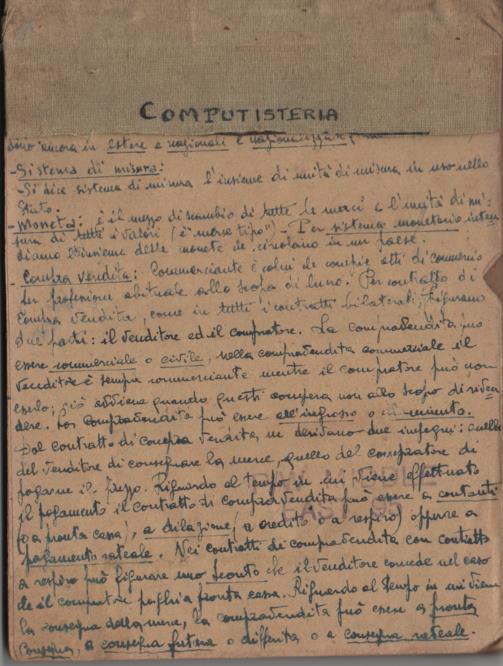 COMPUTISTERIA
ancora in Estere e nazionali e
- Sistema di misura:
- Si dice sistema di misura l'insieme di unità di misura in uso nello
Stato.
- Moneta: è il mezzo di scambio di tutte le merci e l'unità di mi-
sura di tutti i valori (è "merce tipo") - Per sistema monetario inten
diamo l'insieme delle monete che circolano in un paese.
- Compra vendita: Commerciante è colui che compie atti di commercio
per professione abituale allo scopo di lucro. Per contratto di
compra vendita, come in tutti i contratti bilaterali, figurano
due parti: il venditore ed il compratore. La compravendita può
essere commerciale o civile; nella compravendita commerciale il
venditore è sempre commerciante mentre il compratore può non
esserlo; ciò avviene quando questi compera non allo scopo di riven
dere. La compravendita può essere all'ingrosso o in minuto.
Dal contratto di compra vendita ne derivano due impegni: quello
del venditore di consegnare la merce, quello del compratore di
pagarne il prezzo. Riguardo al tempo in cui viene effettuato
il pagamento il contratto di compravendita può essere a contanti
(o a pronta cassa), a dilazione, (a credito o a respiro) oppure a
pagamento rateale. Nei contratti di compravendita con contratto
a respiro può figurare uno sconto che il venditore concede nel caso
che il compratore paghi a pronta cassa. Riguardo al tempo in cui viene
la consegna della merce, la compravendita può essere a pronta
consegna, a consegna futura o differita o a consegna rateale.
MIDDLE
EAST